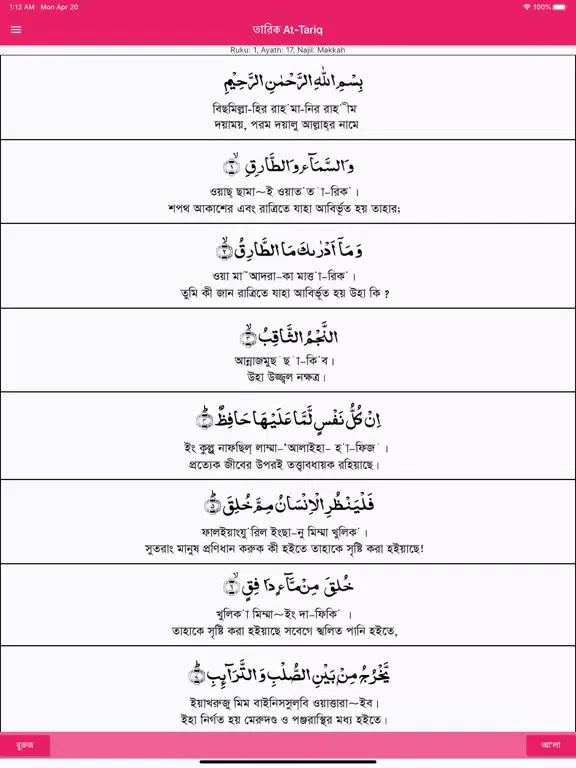 1:12 AM Mon Apr 20 100%
তারিক At-Tariq
Ruku: 1, Ayath: 17, Najil: Makkah
بِسْمِ اللّٰهِ الرَّحْمٰنِ الرَّحِيْمِ
বিছমিল্লা-হির রাহ'মা-নির রাহ'ীম
দয়াময়, পরম দয়ালু আল্লাহ্‌র নামে
وَالسَّمَآءِ وَالطَّارِقِ ۙ﴿۱﴾
ওয়াছ্ ছামা~ই ওয়াত'ত'া-রিক'।
শপথ আকাশের এবং রাত্রিতে যাহা আবির্ভূত হয় তাহার;
وَمَاۤ اَدْرٰىكَ مَا الطَّارِقُ ۙ﴿۲﴾
ওয়া মা~আদরা-কা মাত্ত'া-রিক'।
তুমি কী জান রাত্রিতে যাহা আবির্ভূত হয় উহা কি ?
النَّجْمُ الثَّاقِبُ ۙ﴿۳﴾
আন্নাজমুছ'ছ'া-কি'ব।
উহা উজ্জ্বল নক্ষত্র।
اِنْ كُلُّ نَفْسٍ لَّمَّا عَلَيْهَا حَافِظٌ ؕ﴿۴﴾
ইং কুল্লু নাফছিল্ লাম্মা-‘আলাইহা- হ'া-ফিজ' ।
প্রত্যেক জীবের উপরই তত্ত্বাবধায়ক রহিয়াছে।
فَلْيَنْظُرِ الْاِنْسَانُ مِمَّ خُلِقَ ؕ﴿۵﴾
ফালইয়াংযু'রিল ইংছা-নু মিম্মা খুলিক'।
সুতরাং মানুষ প্রণিধান করুক কী হইতে তাহাকে সৃষ্টি করা হইয়াছে!
خُلِقَ مِنْ مَّآءٍ دَافِقٍ ۙ﴿۶﴾
খুলিক'া মিম্মা~ইং দা-ফিকি' ।
তাহাকে সৃষ্টি করা হইয়াছে সবেগে স্খলিত পানি হইতে,
يَّخْرُجُ مِنْۢ بَيْنِ الصُّلْبِ وَالتَّرَآئِبِ ؕ﴿۷﴾
ইয়াখরুজু মিম বাইনিসসুল্‌বি ওয়াত্তারা~ইব।
ইহা নির্গত হয় মেরুদণ্ড ও পঞ্জরাস্থির মধ্য হইতে।
বুরুজ
আ'লা